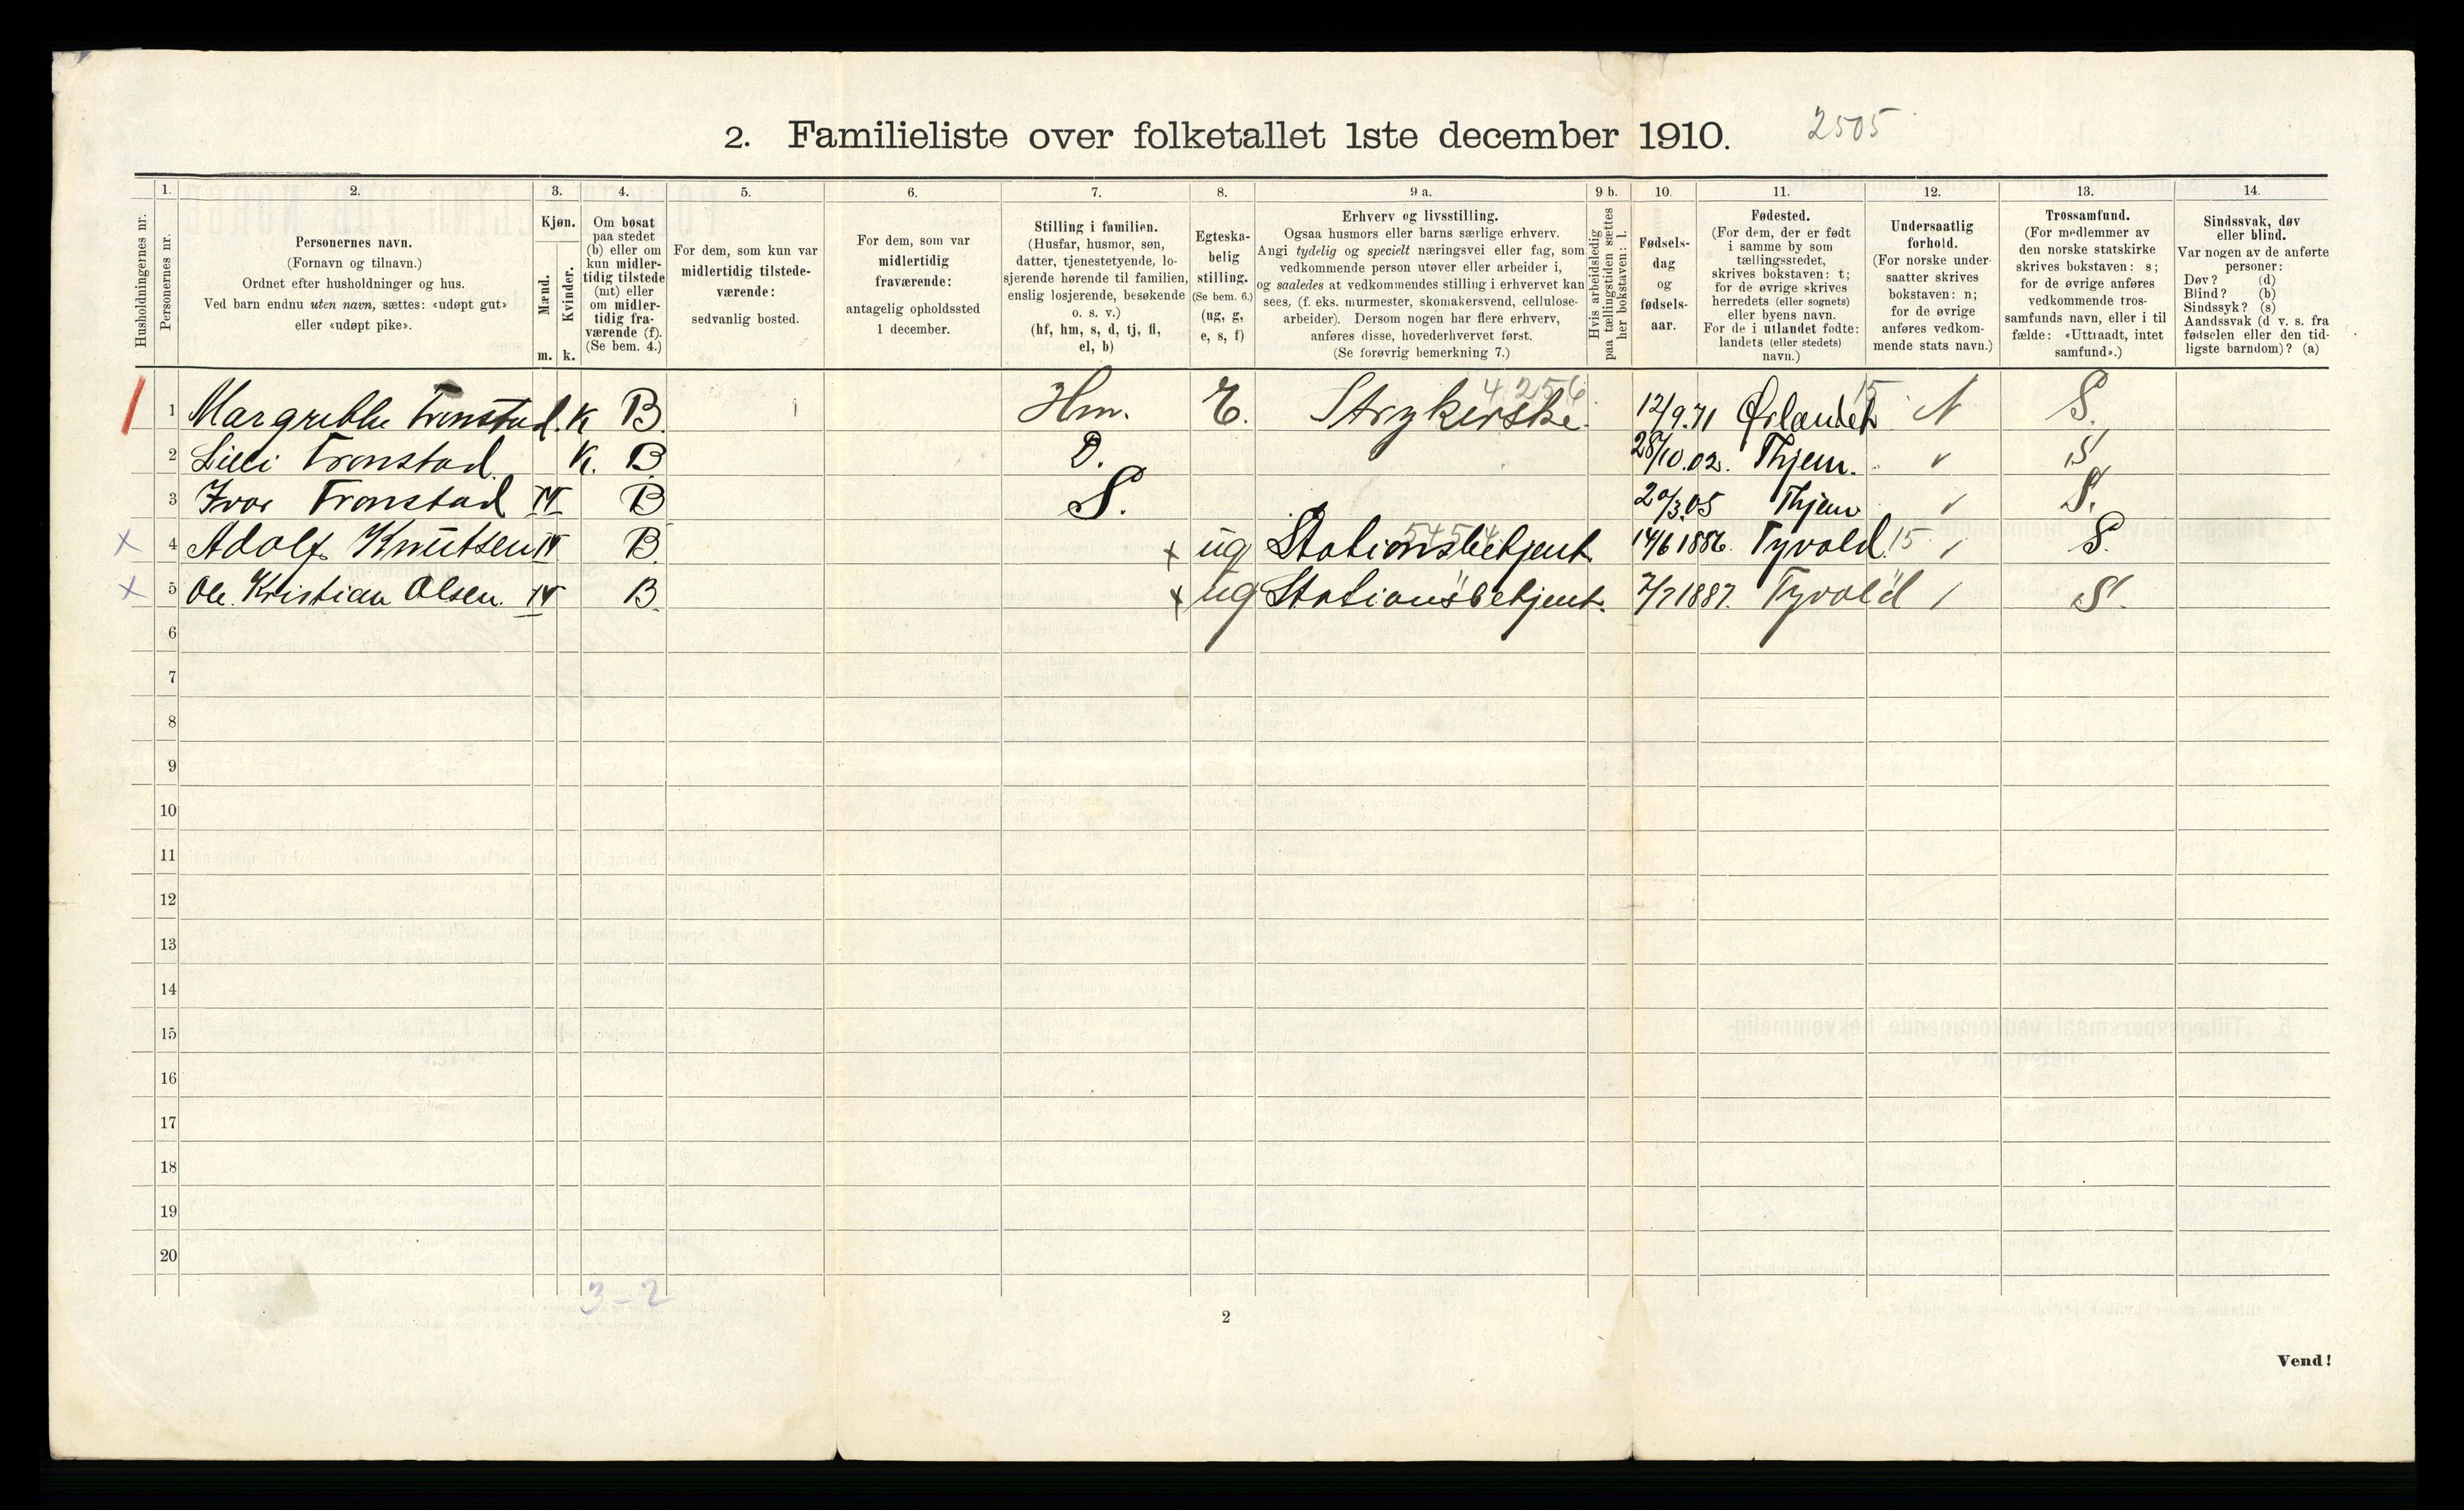 2. Familieliste over folketallet 1ste december 1910. 2505
1. 2. 3. 4. 5. 6. 7. 8. 9 a. 9 b. 10. 11. 12. 13. 14.
Husholdningernes nr.
Personernes nr.
Personernes navn.
(Fornavn og tilnavn.)
Ordnet efter husholdninger og hus.
Ved barn endnu uten navn, sættes: «udøpt gut»
eller «udøpt pike».
Kjøn.
Mænd.
Kvinder.
m. k.
Om bosat
paa stedet
(b) eller om
kun midler-
tidig tilstede
(mt) eller
om midler-
tidig fra-
værende (f).
(Se bem. 4.)
For dem, som kun var
midlertidig tilstede-
værende:
sedvanlig bosted.
For dem, som var
midlertidig
fraværende:
antagelig opholdssted
1 december.
Stilling i familien.
(Husfar, husmor, søn,
datter, tjenestetyende, lo-
sjerende hørende til familien,
enslig losjerende, besøkende
o. s. v.)
(hf, hm, s, d, tj, fl,
el, b)
Egteska-
belig
stilling.
(Se bem. 6.)
(ug, g,
e, s, f)
Erhverv og livsstilling.
Ogsaa husmors eller barns særlige erhverv.
Angi tydelig og specielt næringsvei eller fag, som
vedkommende person utøver eller arbeider i,
og saaledes at vedkommendes stilling i erhvervet kan
sees, (f. eks. murmester, skomakersvend, cellulose-
arbeider). Dersom nogen har flere erhverv,
anføres disse, hovederhvervet først.
(Se forøvrig bemerkning 7.)
Hvis arbeidsledig
paa tællingstiden sættes
her bokstaven: l.
Fødsels-
dag
og
fødsels-
aar.
Fødested.
(For dem, der er født
i samme by som
tællingsstedet,
skrives bokstaven: t;
for de øvrige skrives
herredets (eller sognets)
eller byens navn.
For de i utlandet fødte:
landets (eller stedets)
navn.)
Undersaatlig
forhold.
(For norske under-
saatter skrives
bokstaven: n;
for de øvrige
anføres vedkom-
mende stats navn.)
Trossamfund.
(For medlemmer av
den norske statskirke
skrives bokstaven: s;
for de øvrige anføres
vedkommende tros-
samfunds navn, eller i til
fælde: «Uttraadt, intet
samfund».)
Sindssvak, døv
eller blind.
Var nogen av de anførte
personer:
Døv? (d)
Blind? (b)
Sindssyk? (s)
Aandssvak (d v. s. fra
fødselen eller den tid-
ligste barndom)? (a)
1 Margrethe Tronstad. K B. Hm. E. Strykerske. 4256 12/9.71 Ørlandet 15 N S.
2 Lilli Tronstad K. B D. 28/10.02. Thjem. S
3 Ivar Tronstad M B S. 20/3.05 Thjem S.
x 4 Adolf Knutsen M B. x ug Stationsbetjent 5454 14/6 1886. Tyvold 15 S.
x 5 Ole Kristian Olsen. M B. x ug Stationsbetjent. 7/7 1887. Tyvold S.
6
7
8
9
10
11
12
13
14
15
16
17
18
19
20
3-2
2
Vend!